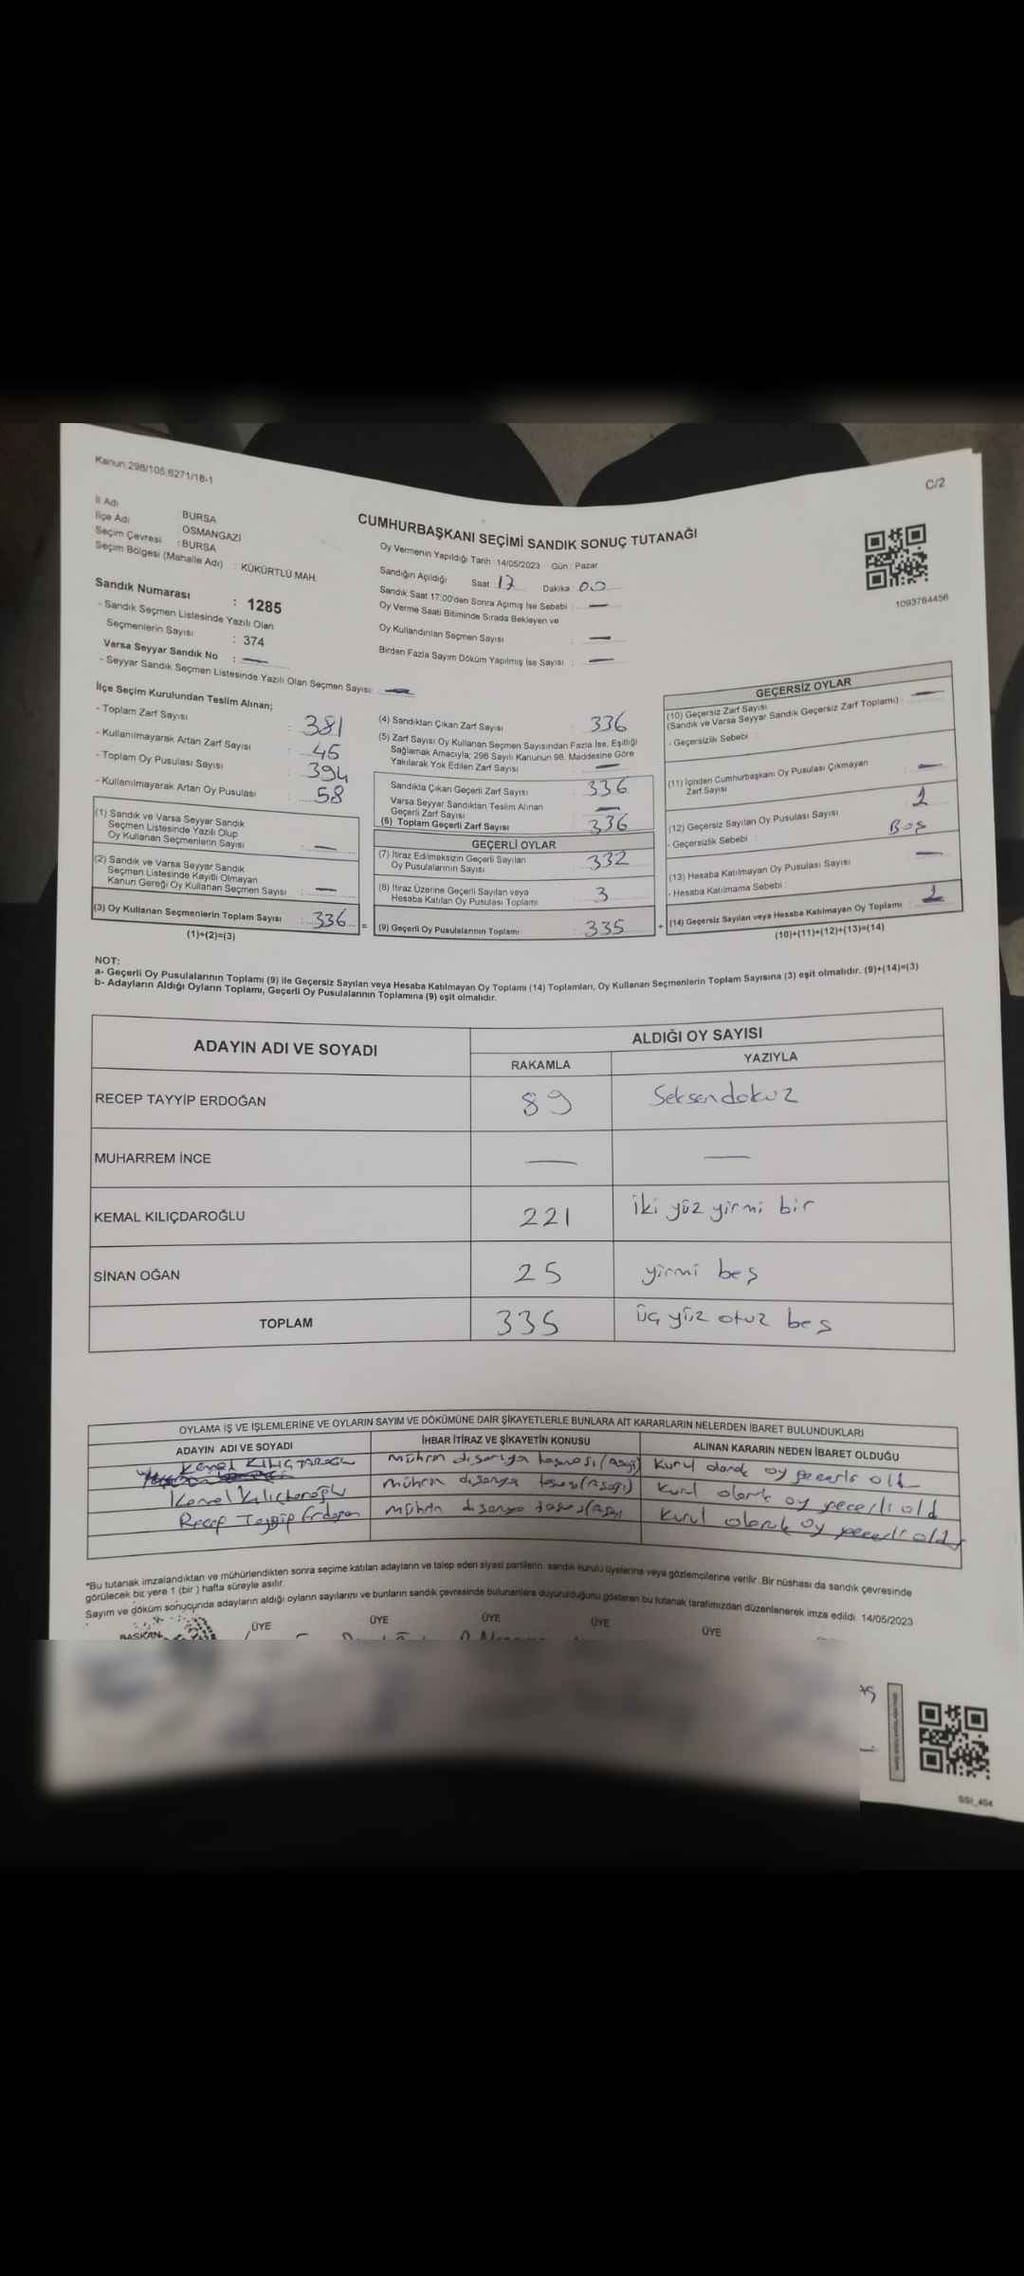 Kanun:298/105;6271/18-1
C/2
İl Adı BURSA
İlçe Adı OSMANGAZİ
Seçim Çevresi : BURSA
Seçim Bölgesi (Mahalle Adı) : KÜKÜRTLÜ MAH.
CUMHURBAŞKANI SEÇİMİ SANDIK SONUÇ TUTANAĞI
Oy Vermenin Yapıldığı Tarih :14/05/2023 Gün : Pazar
Sandığın Açıldığı Saat : 17 Dakika : 00
Sandık Saat 17:00'den Sonra Açımış İse Sebebi : —
Oy Verme Saati Bitiminde Sırada Bekleyen ve
Oy Kullandırılan Seçmen Sayısı : —
Birden Fazla Sayım Döküm Yapılmış İse Sayısı : —
1093764456
Sandık Numarası : 1285
- Sandık Seçmen Listesinde Yazılı Olan
Seçmenlerin Sayısı : 374
Varsa Seyyar Sandık No : —
- Seyyar Sandık Seçmen Listesinde Yazılı Olan Seçmen Sayısı: —
İlçe Seçim Kurulundan Teslim Alınan;
- Toplam Zarf Sayısı : 381
- Kullanılmayarak Artan Zarf Sayısı : 45
- Toplam Oy Pusulası Sayısı : 394
- Kullanılmayarak Artan Oy Pusulası : 58
(1) Sandık ve Varsa Seyyar Sandık
Seçmen Listesinde Yazılı Olup
Oy Kullanan Seçmenlerin Sayısı : —
(2) Sandık ve Varsa Seyyar Sandık
Seçmen Listesinde Kayıtlı Olmayan
Kanun Gereği Oy Kullanan Seçmen Sayısı : —
(3) Oy Kullanan Seçmenlerin Toplam Sayısı : 336 =
(1)+(2)=(3)
(4) Sandıktan Çıkan Zarf Sayısı : 336
(5) Zarf Sayısı Oy Kullanan Seçmen Sayısından Fazla İse, Eşitliği
Sağlamak Amacıyla; 298 Sayılı Kanunun 98. Maddesine Göre
Yakılarak Yok Edilen Zarf Sayısı : —
Sandıkta Çıkan Geçerli Zarf Sayısı : 336
Varsa Seyyar Sandıktan Teslim Alınan
Geçerli Zarf Sayısı : —
(6) Toplam Geçerli Zarf Sayısı : 336
GEÇERLİ OYLAR
(7) İtiraz Edilmeksizin Geçerli Sayılan
Oy Pusulalarının Sayısı : 332
(8) İtiraz Üzerine Geçerli Sayılan veya
Hesaba Katılan Oy Pusulası Toplamı : 3
(9) Geçerli Oy Pusulalarının Toplamı : 335 +
GEÇERSİZ OYLAR
(10) Geçersiz Zarf Sayısı
(Sandık ve Varsa Seyyar Sandık Geçersiz Zarf Toplamı) : —
- Geçersizlik Sebebi :
(11) İçinden Cumhurbaşkanı Oy Pusulası Çıkmayan
Zarf Sayısı : —
(12) Geçersiz Sayılan Oy Pusulası Sayısı : 1
- Geçersizlik Sebebi : Boş
(13) Hesaba Katılmayan Oy Pusulası Sayısı : —
- Hesaba Katılmama Sebebi :
(14) Geçersiz Sayılan veya Hesaba Katılmayan Oy Toplamı : 1
(10)+(11)+(12)+(13)=(14)
NOT:
a- Geçerli Oy Pusulalarının Toplamı (9) ile Geçersiz Sayılan veya Hesaba Katılmayan Oy Toplamı (14) Toplamları, Oy Kullanan Seçmenlerin Toplam Sayısına (3) eşit olmalıdır. (9)+(14)=(3)
b- Adayların Aldığı Oyların Toplamı, Geçerli Oy Pusulalarının Toplamına (9) eşit olmalıdır.
ADAYIN ADI VE SOYADI ALDIĞI OY SAYISI
RAKAMLA YAZIYLA
RECEP TAYYİP ERDOĞAN 89 Seksendokuz
MUHARREM İNCE — —
KEMAL KILIÇDAROĞLU 221 iki yüz yirmi bir
SİNAN OĞAN 25 yirmi beş
TOPLAM 335 üç yüz otuz beş
OYLAMA İŞ VE İŞLEMLERİNE VE OYLARIN SAYIM VE DÖKÜMÜNE DAİR ŞİKAYETLERLE BUNLARA AİT KARARLARIN NELERDEN İBARET BULUNDUKLARI
ADAYIN ADI VE SOYADI İHBAR İTİRAZ VE ŞİKAYETİN KONUSU ALINAN KARARIN NEDEN İBARET OLDUĞU
Kemal KILIÇTAROĞLU mührn dışarıya taşması (Aşağı) Kurul olarak oy geçerli old
Kemal Kılıçtaroğlu mührn dışarıya taşması (Aşağı) Kurul olarak oy geçerli old
Recep Tayyip Erdoğan mührn dışarıya taşması (Aşağı Kurul olarak oy geçerli old
*Bu tutanak imzalandıktan ve mühürlendikten sonra seçime katılan adayların ve talep eden siyasi partilerin, sandık kurulu üyelerine veya gözlemcilerine verilir. Bir nüshası da sandık çevresinde
görülecek bir yere 1 (bir ) hafta süreyle asılır.
Sayım ve döküm sonucunda adayların aldığı oyların sayılarını ve bunların sandık çevresinde bulunanlara duyurulduğunu gösteren bu tutanak tarafımızdan düzenlenerek imza edildi. 14/05/2023
BAŞKAN ÜYE ÜYE ÜYE ÜYE ÜYE
SSI_404